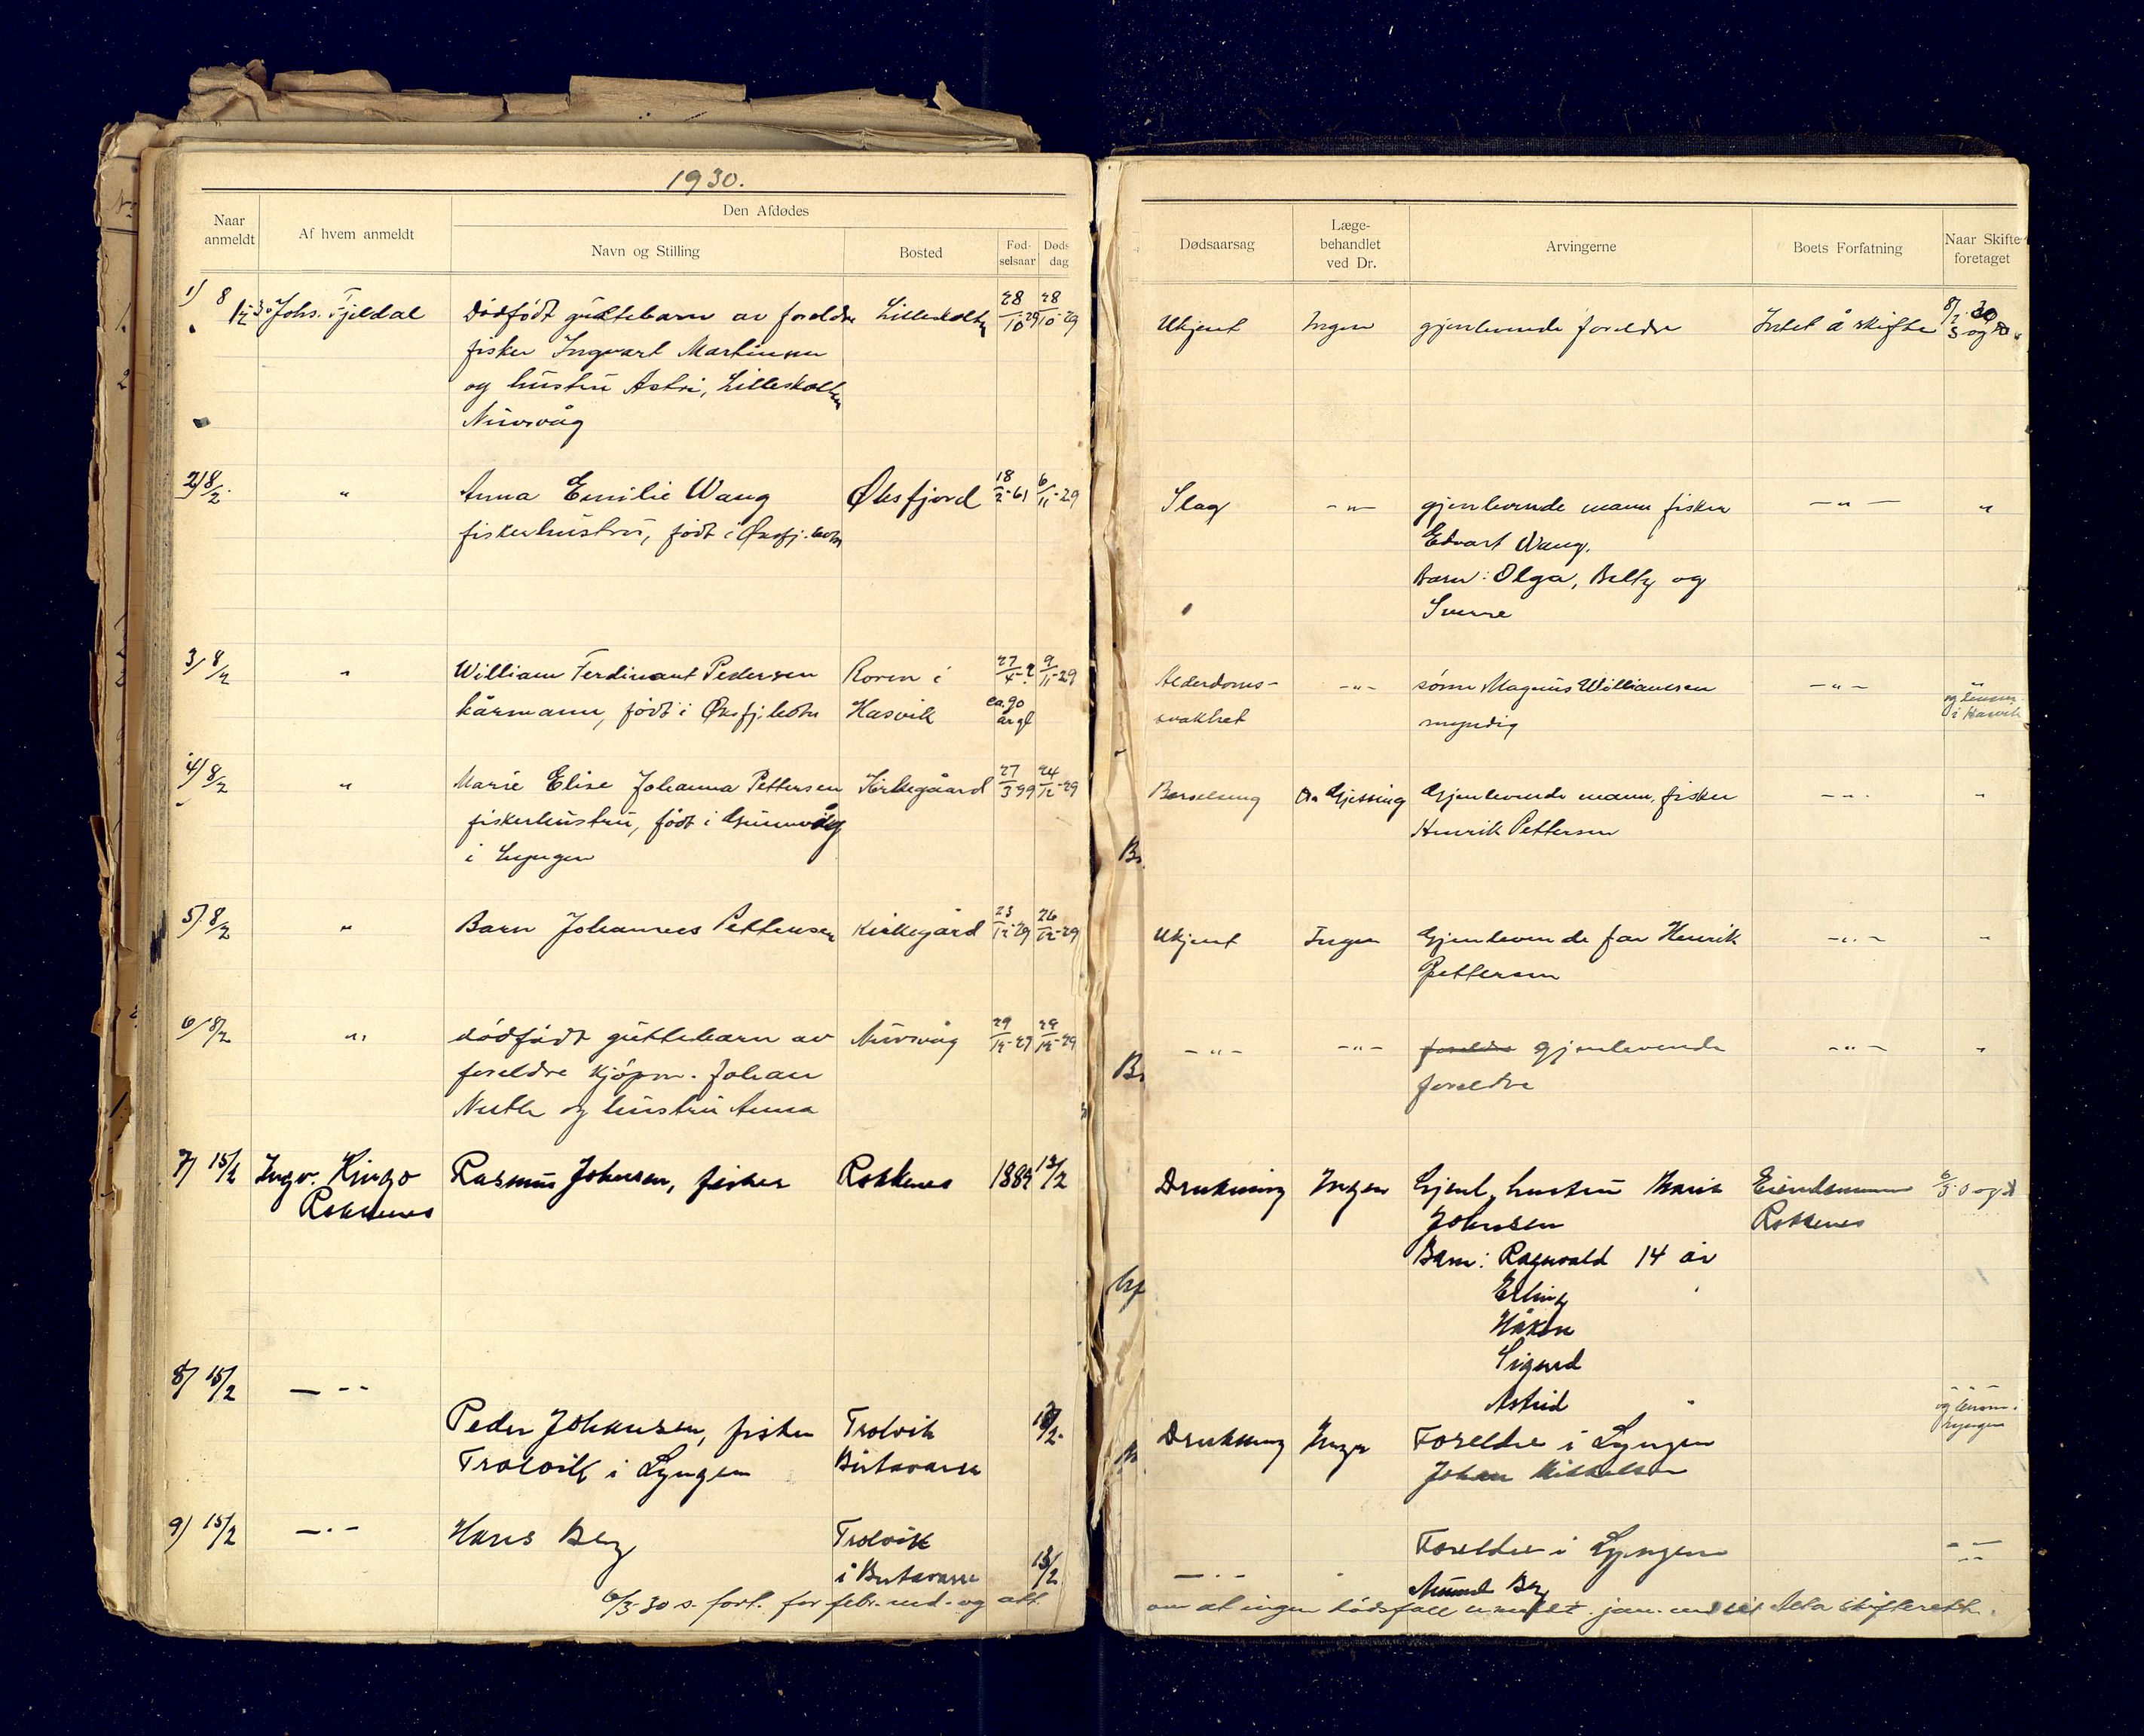 1930.
Naar anmeldt
Af hvem anmeldt
Den Afdødes
Navn og Stilling
Bosted
Fød-selsaar
Døds dag
1) 8/2 30 Johs. Fjeldal Dødfødt guttebarn av foreldre 28/10 29 28/10-29
fisker Ingvart Martinsen
og hustru Astri,
Nuvsvåg
2) 8/2. " Anna Emilie Wang Øksfjord 18/2-61 6/11-29
fiskerhustru, født i Øksfj.botn
3) 8/2 " William Ferdinant Pedersen Roren i 27/4-? 9/11-29
kårmann, født i Øksfj.botn Hasvik ca. 90
år gl
4) 8/2 " Marie Elise Johanna Pettersen Kirkegåard 27/3 99 24/12-29
fiskerhustru, født i
i Lyngen
5) 8/2 " Barn Johannes Pettersen Kirkegård 23/12-29 26/12-29
6) 8/2 " dødfødt guttebarn av Nuvsvåg 29/12-29 29/12-29
foreldre kjøpm. Johan
og hustru Anna
7) 15/2 Ingv. Kingo Rasmus Johnsen, fisker Rokkenes 13/2
Rokkenes
8) 15/2 — " —
Peder Johansen, fisker Trolvik 13/2.
Trolvik i Lyngen Birtavarre
9) 15/2 — " — Hans Berg Trolvik
i Birtavarre 13/2
6/3-30 s. fort. for febr. md. og att.
Dødsaarsag
Læge-behandlet ved Dr.
Arvingerne
Boets Forfatning
Naar Skifte foretaget
Ukjent Ingen gjenlevende foreldre Intet å skifte
Slag — " — gjenlevende mann fisker — " — "
Edvart Wang.
Barn: Olga, Betty og
Sverre
Alderdoms- — " — sønn Magnus Williamsen — " — "
svakhet myndig
i Hasvik
Barselseng Dr. Gjessing Gjenlevende mann, fisker — " — "
Henrik Pettersen
Ukjent Ingen Gjenlevende far Henrik — " — "
Pettersen
— " — — " — foreldre gjenlevende — " — "
foreldre
Drukning Ingen Gjenl. hustru Marie Eiendommen
Johnsen Rokkenes
Barn: Ragnvald 14 år
Erling
Håkon
Sigurd
Astrid
Drukning Ingen Foreldre i Lyngen
Johan Mikkelsen
Foreldre i Lyngen
— " — Berg
om at ingen dødsfall anmeldt jan. md til Alta skifterett.